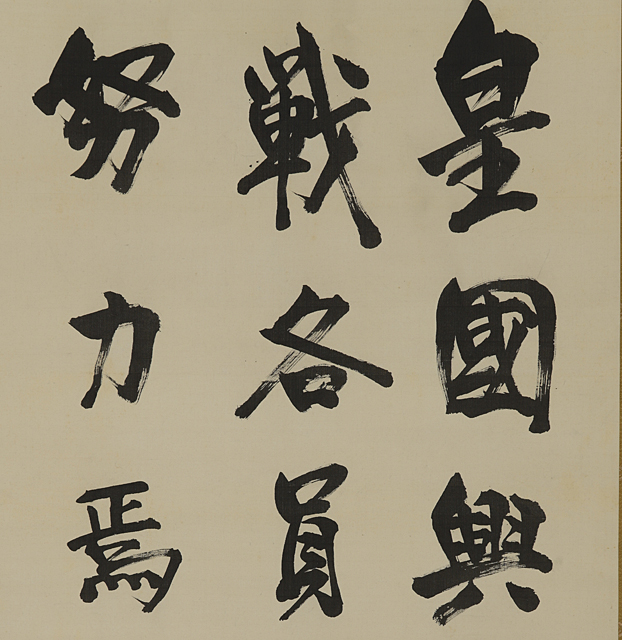 皇國興
戦各員
努力焉